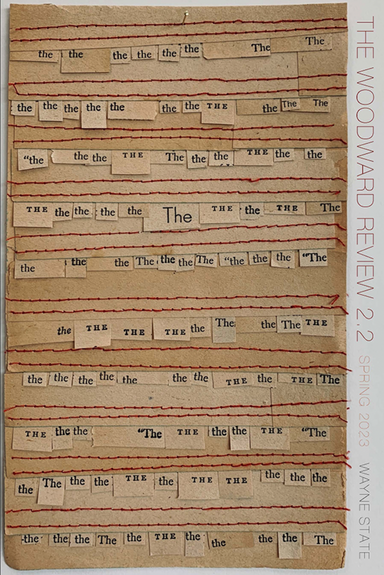 the the the the the the The The
the the the the the the the THE the The The
"the the the THE The the the THE the the
THE the the the the The THE the THE The
the the the The the the The "the the the "The
the THE THE THE the The the The THE
the the the the the the the THE the THE The
THE the the "The THE the the THE "The
the The the the THE the THE THE the the the
-the the the The the THE the the the the The
THE WOODWARD REVIEW 2.2 SPRING 2023 WAYNE STATE